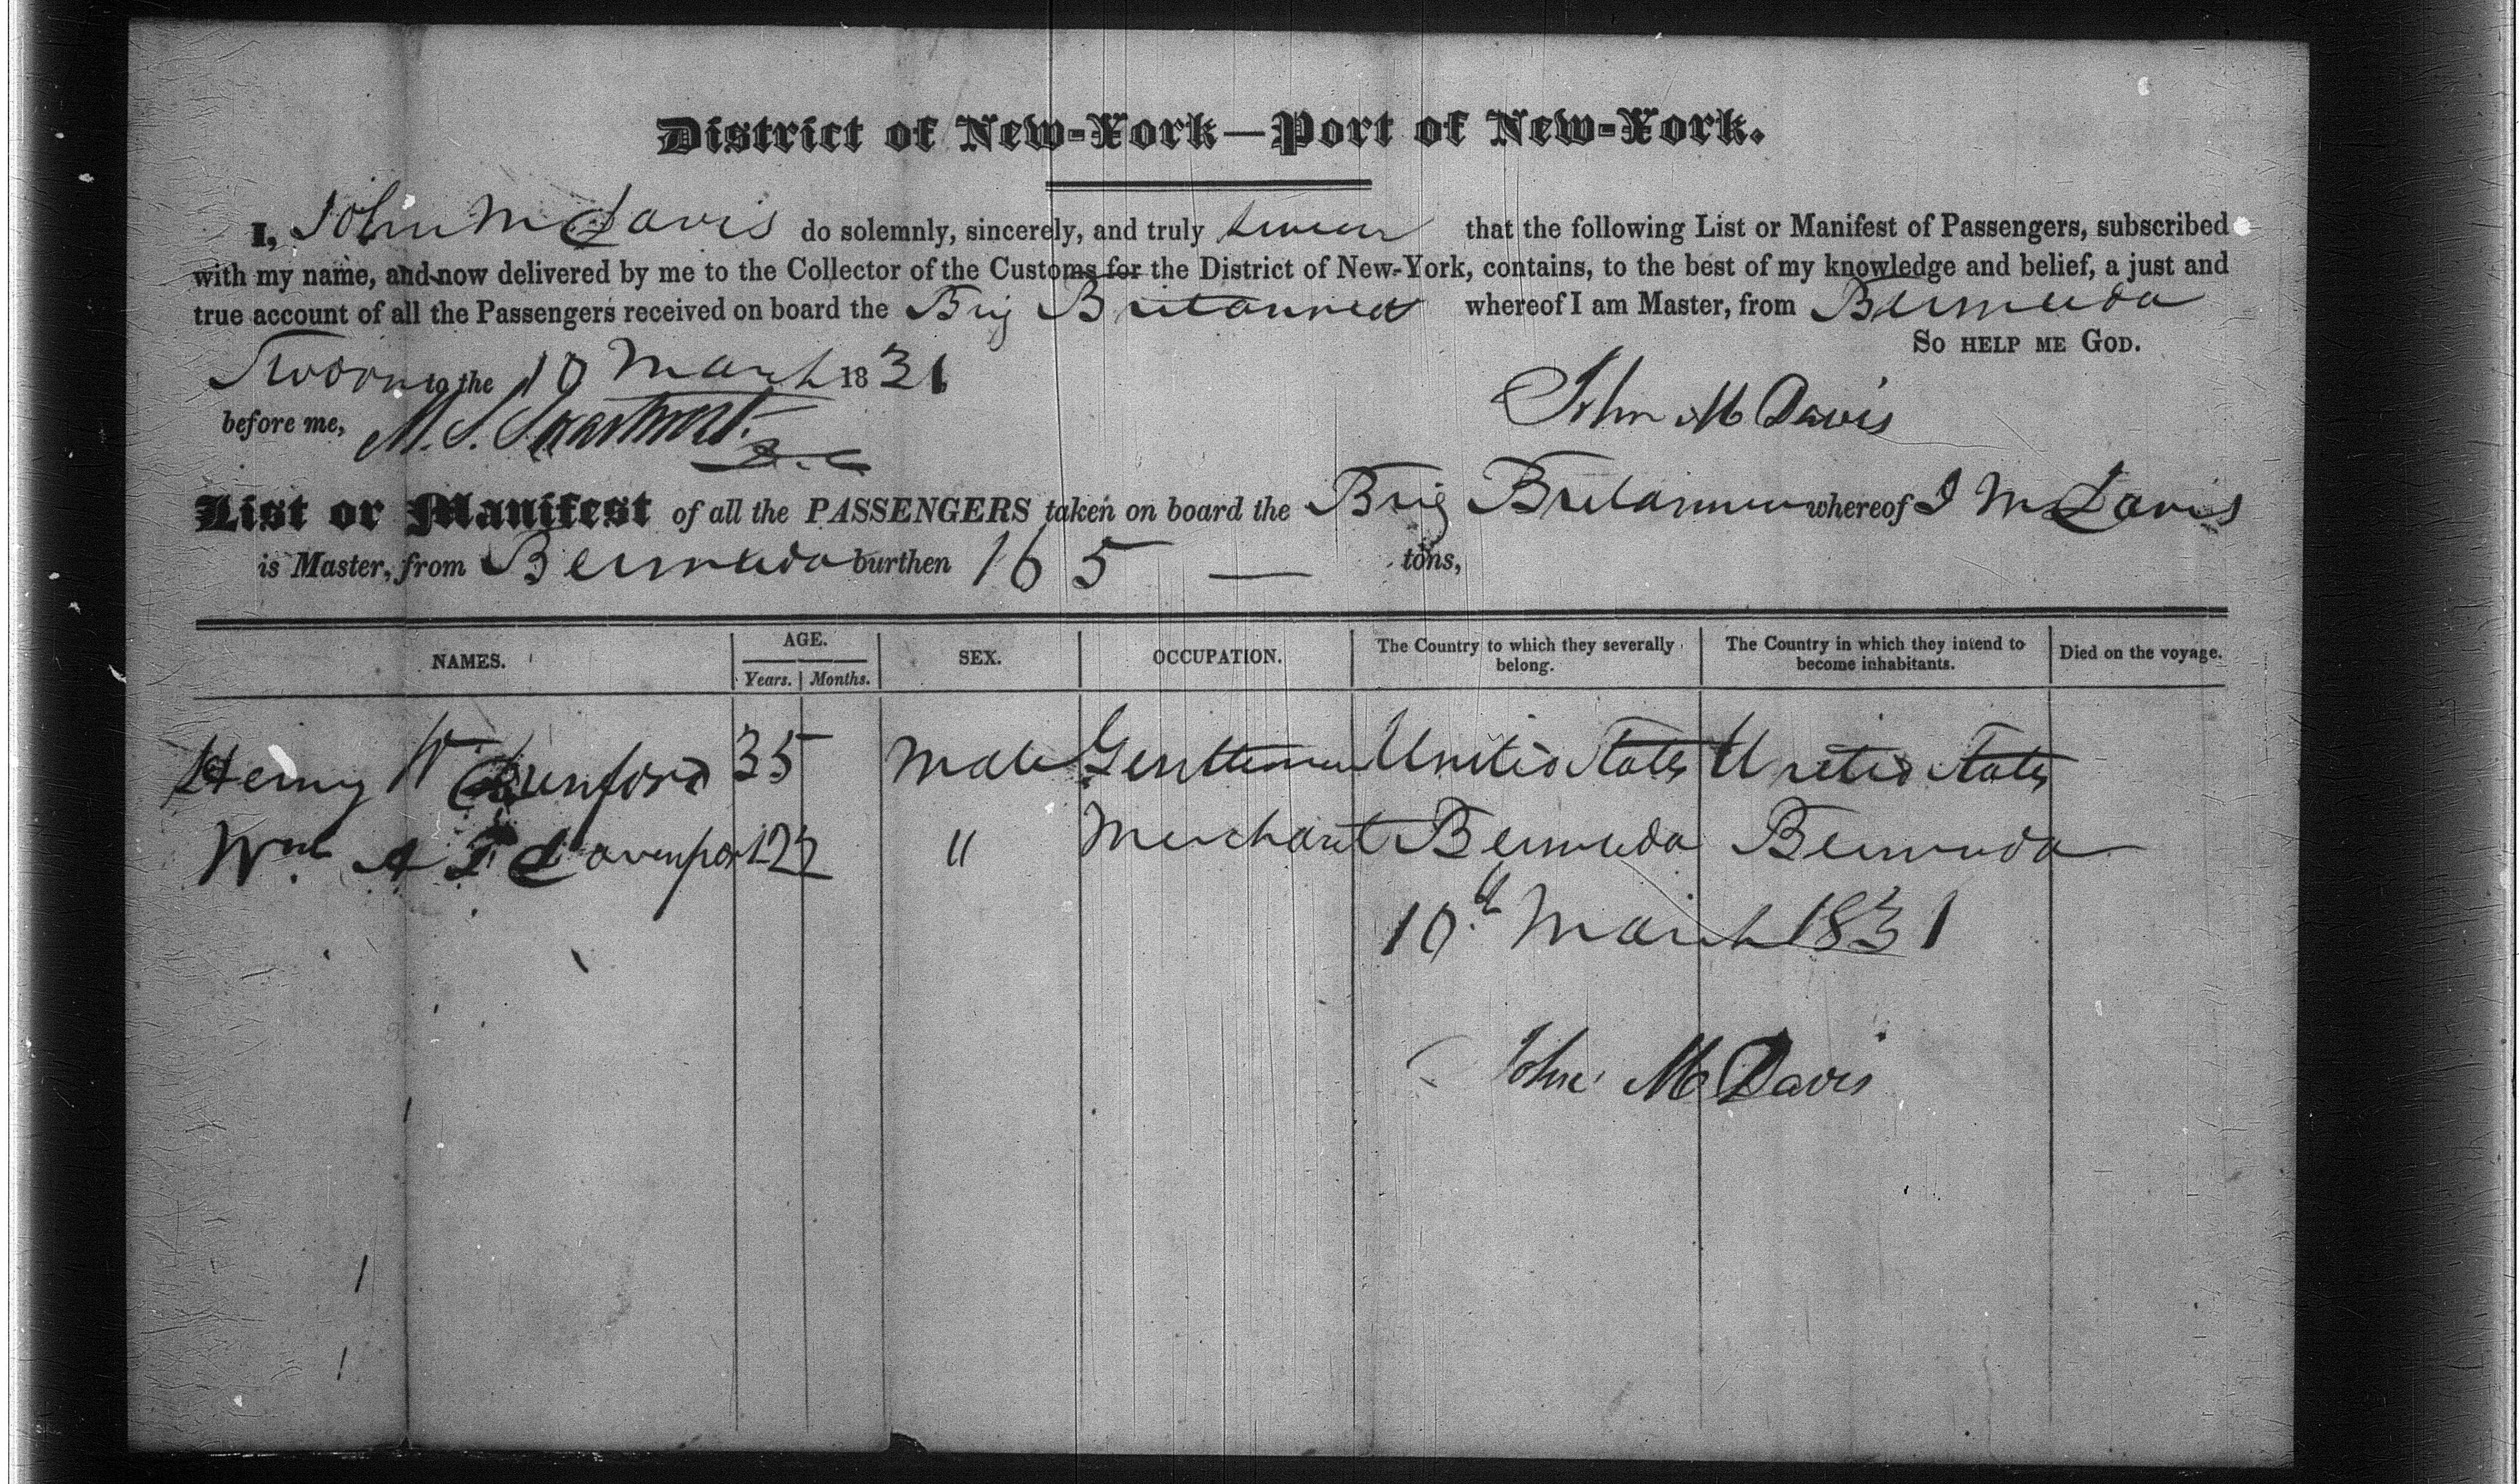 District of New-York—Port of New-York.
I, John M Davis do solemnly, sincerely, and truly swear that the following List or Manifest of Passengers, subscribed
with my name, and now delivered by me to the Collector of the Customs for the District of New-York, contains, to the best of my knowledge and belief, a just and
true account of all the Passengers received on board the Brig Britannia whereof I am Master, from Bermuda
So help me God.
Sworn to the 10 March 1831
before me, M. S. D. C. John M Davis
List or Manifest of all the PASSENGERS taken on board the Brig Britannia whereof J M Davis
is Master, from Bermuda burthen 165 — tons,
NAMES. AGE. Years. Months. SEX. OCCUPATION. The Country to which they severally belong. The Country in which they intend to become inhabitants. Died on the voyage.
Henry W 35 Male Gentleman United States United States
Wm A T Davenport 22 " Merchant Bermuda Bermuda
10th March 1831
John M Davis